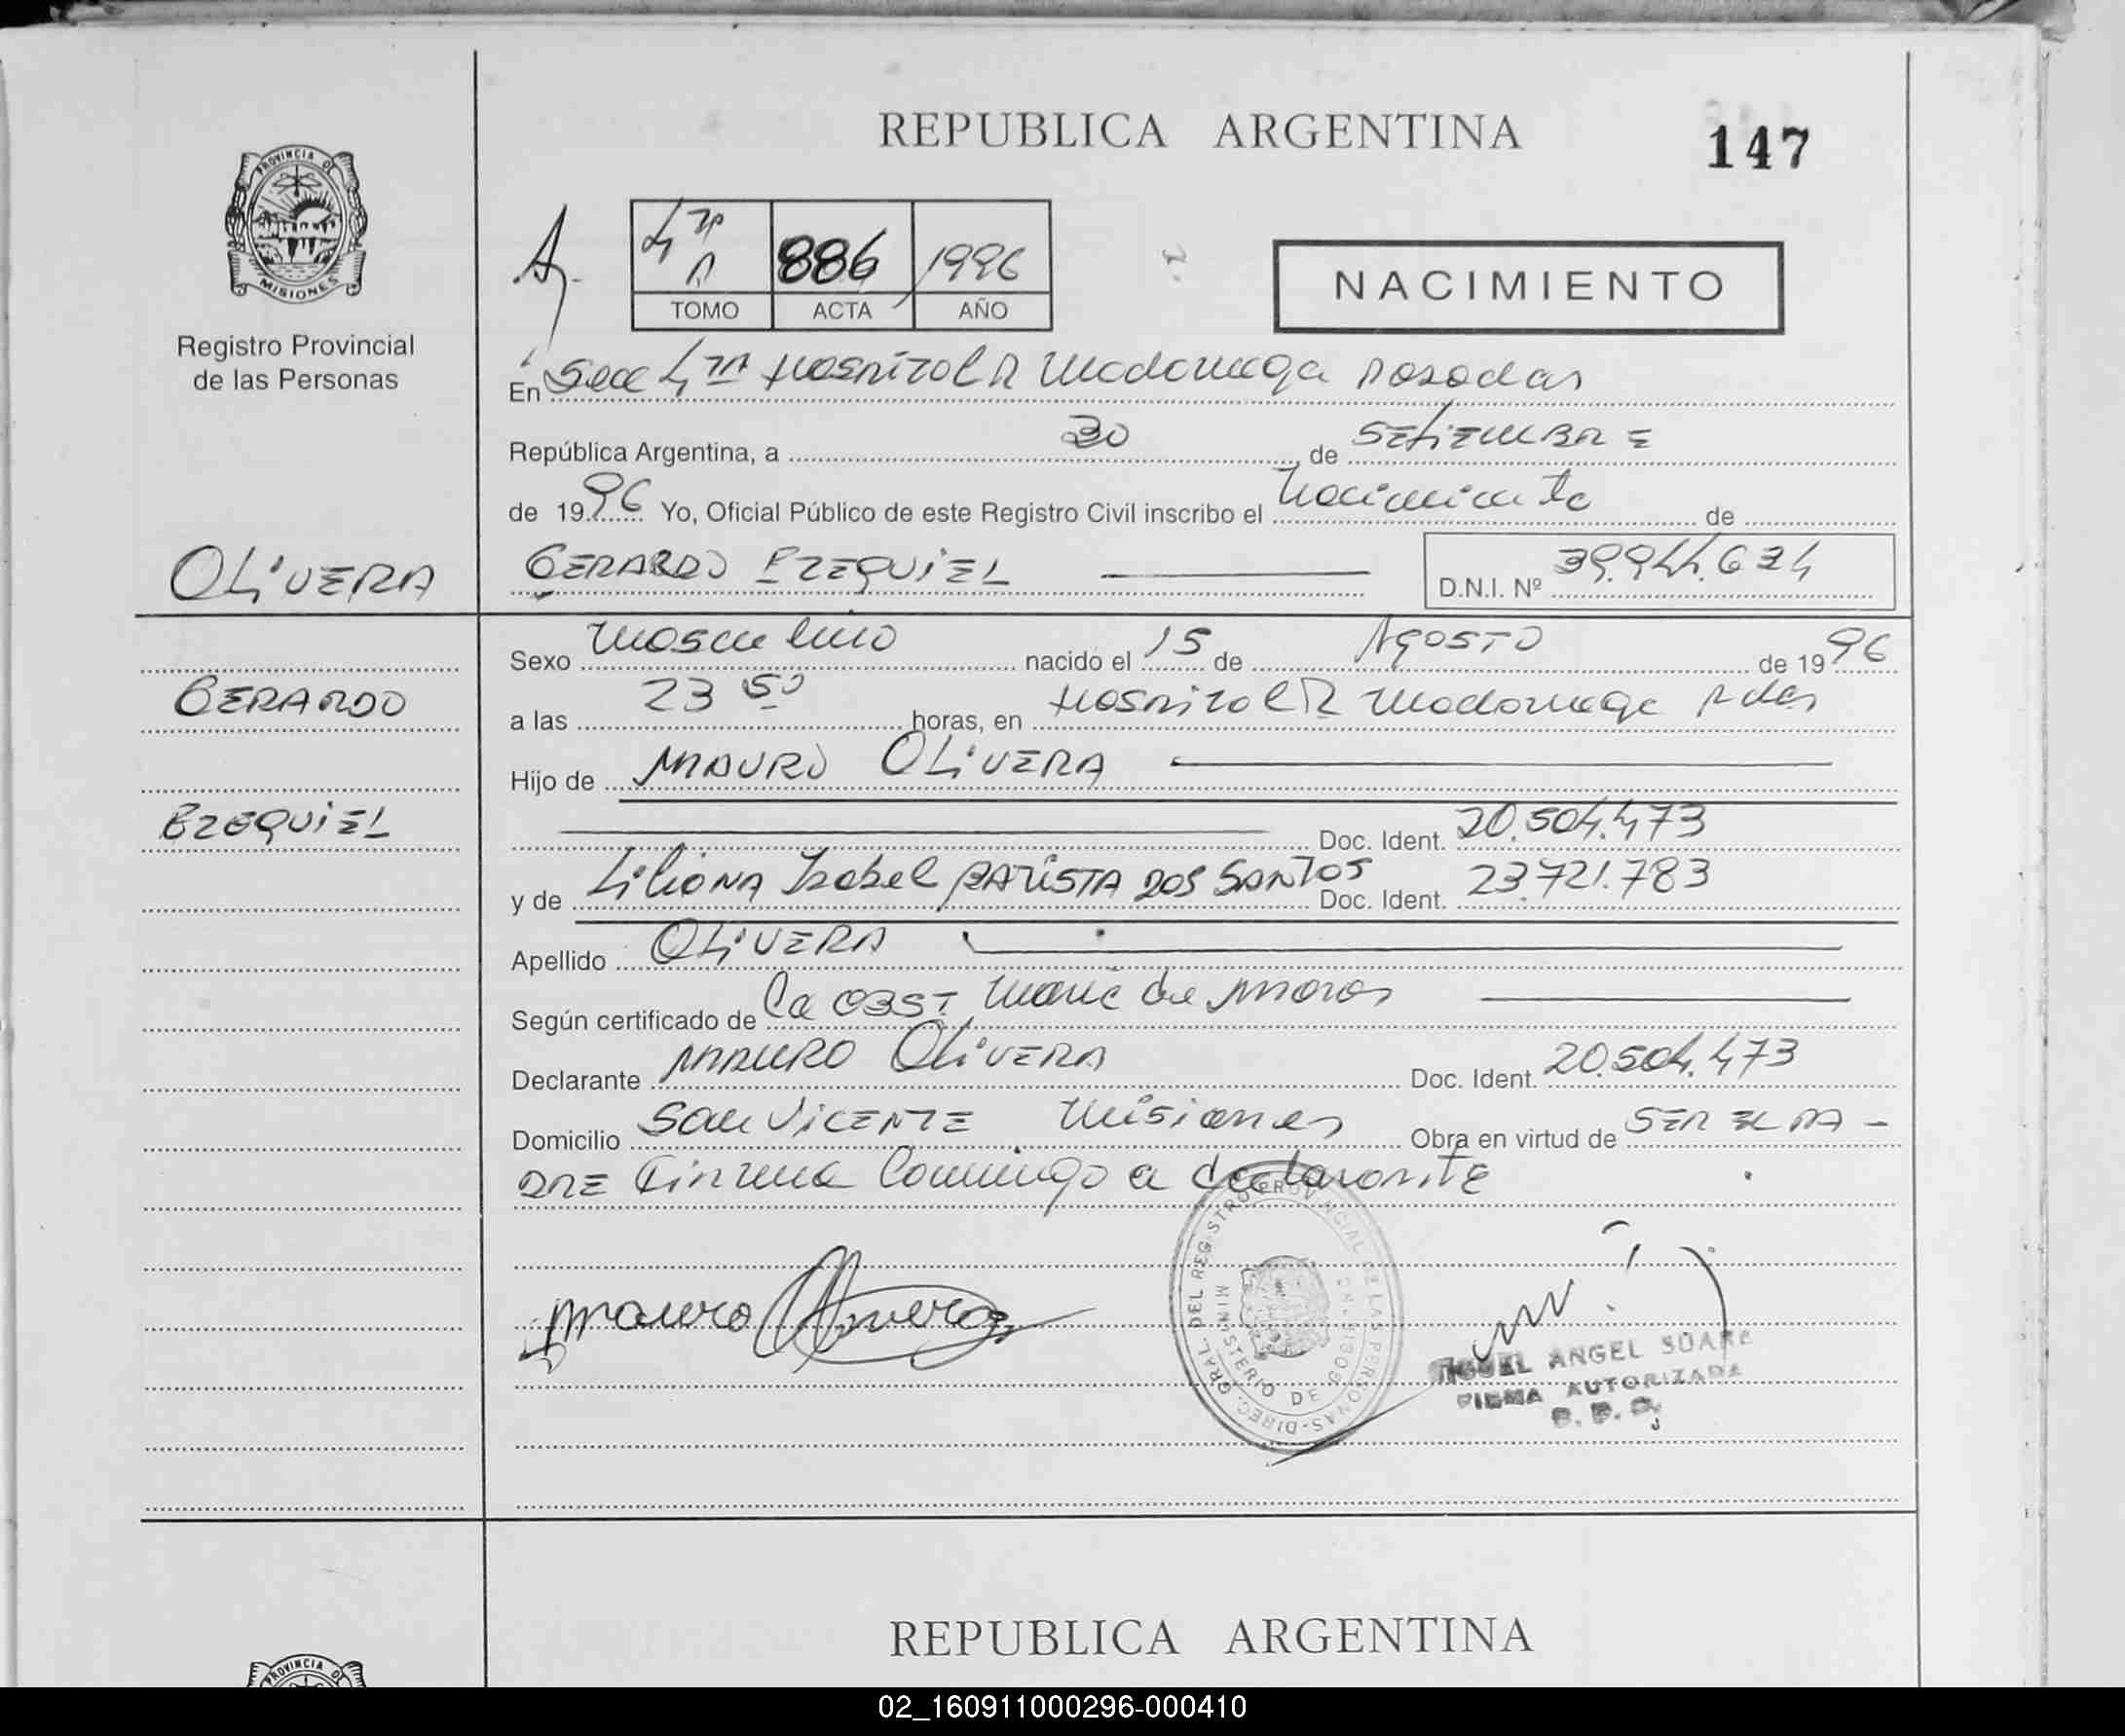 REPUBLICA ARGENTINA
147
PROVINCIA DE
MISIONES
Registro Provincial
de las Personas
4ta
886
1996
TOMO
ACTA
AÑO
NACIMIENTO
En Secc 4ta Hospital R Madariaga Posadas
República Argentina, a 30 de SETIEMBRE
de 1996 Yo, Oficial Público de este Registro Civil inscribo el Nacimiento de
OLIVERA
GERARDO EZEQUIEL
D.N.I. Nº 39.944.634
Sexo masculino nacido el 15 de AGOSTO de 1996
GERARDO
a las 23 50 horas, en Hospital R Madariaga Pdas
Hijo de MAURO OLIVERA
EZEQUIEL
Doc. Ident. 20.504.473
y de Liliana Isabel BATISTA DOS SANTOS Doc. Ident. 23.721.783
Apellido OLIVERA
Según certificado de la OBST
Declarante MAURO OLIVERA Doc. Ident. 20.504.473
Domicilio San VICENTE Misiones Obra en virtud de SER EL PA-
DRE Firma Conmigo el declarante
Mauro Olivera
DIREC. GRAL. DEL REGISTRO PROVINCIAL DE LAS PERSONAS
MINISTERIO DE GOBIERNO
MIGUEL ANGEL SUAREZ
FIRMA AUTORIZADA
REPUBLICA ARGENTINA
PROVINCIA DE
02_160911000296-000410